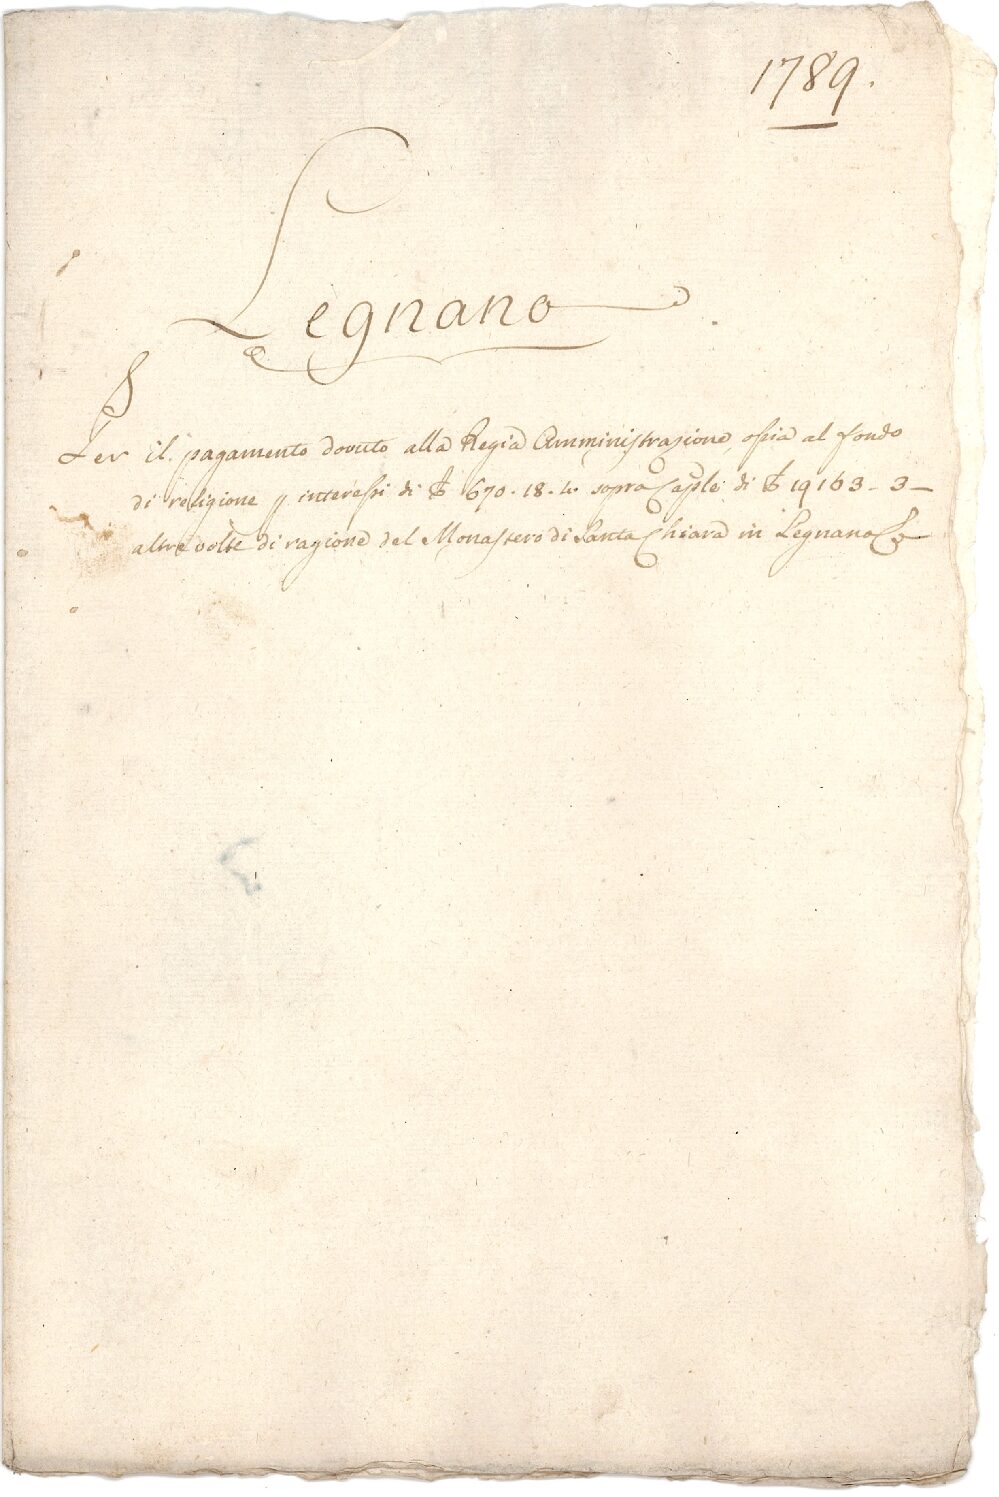 1789.
Legnano
Per il pagamento dovuto alla Regia Amministrazione, ossia al fondo
di religione p interessi di £ 670. 18. 4. sopra Caple di £ 19163 - 3 -
altre volte di ragione del Monastero di Santa Chiara in Legnano